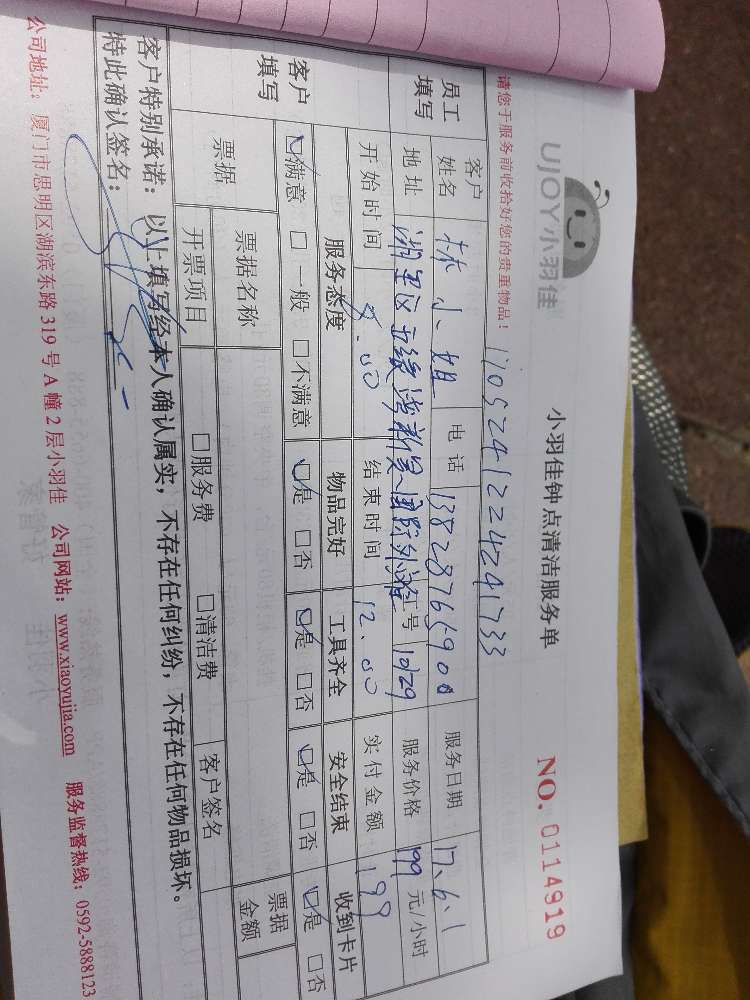 UJOY小羽佳
小羽佳钟点清洁服务单
NO. 0114919
请您于服务前收拾好您的贵重物品！
1705241224241733
员工填写
客户姓名 林小姐 电话 13828765900 服务日期 17.6.1
地址 湖里区 国际 工号 10129 服务价格 199 元/小时
开始时间 8.00 结束时间 12.00 实付金额 199
客户填写
服务态度 物品完好 工具齐全 安全结束 收到卡片
☑满意 □一般 □不满意 ☑是 □否 ☑是 □否 ☑是 □否 ☑是 □否
票据 票据名称 票据金额
开票项目 □服务费 □清洁费 客户签名
客户特别承诺：以上填写经本人确认属实，不存在任何纠纷，不存在任何物品损坏。
特此确认签名：
公司地址：厦门市思明区湖滨东路 319 号 A 幢 2 层小羽佳 公司网站：www.xiaoyujia.com 服务监督热线：0592-5888123